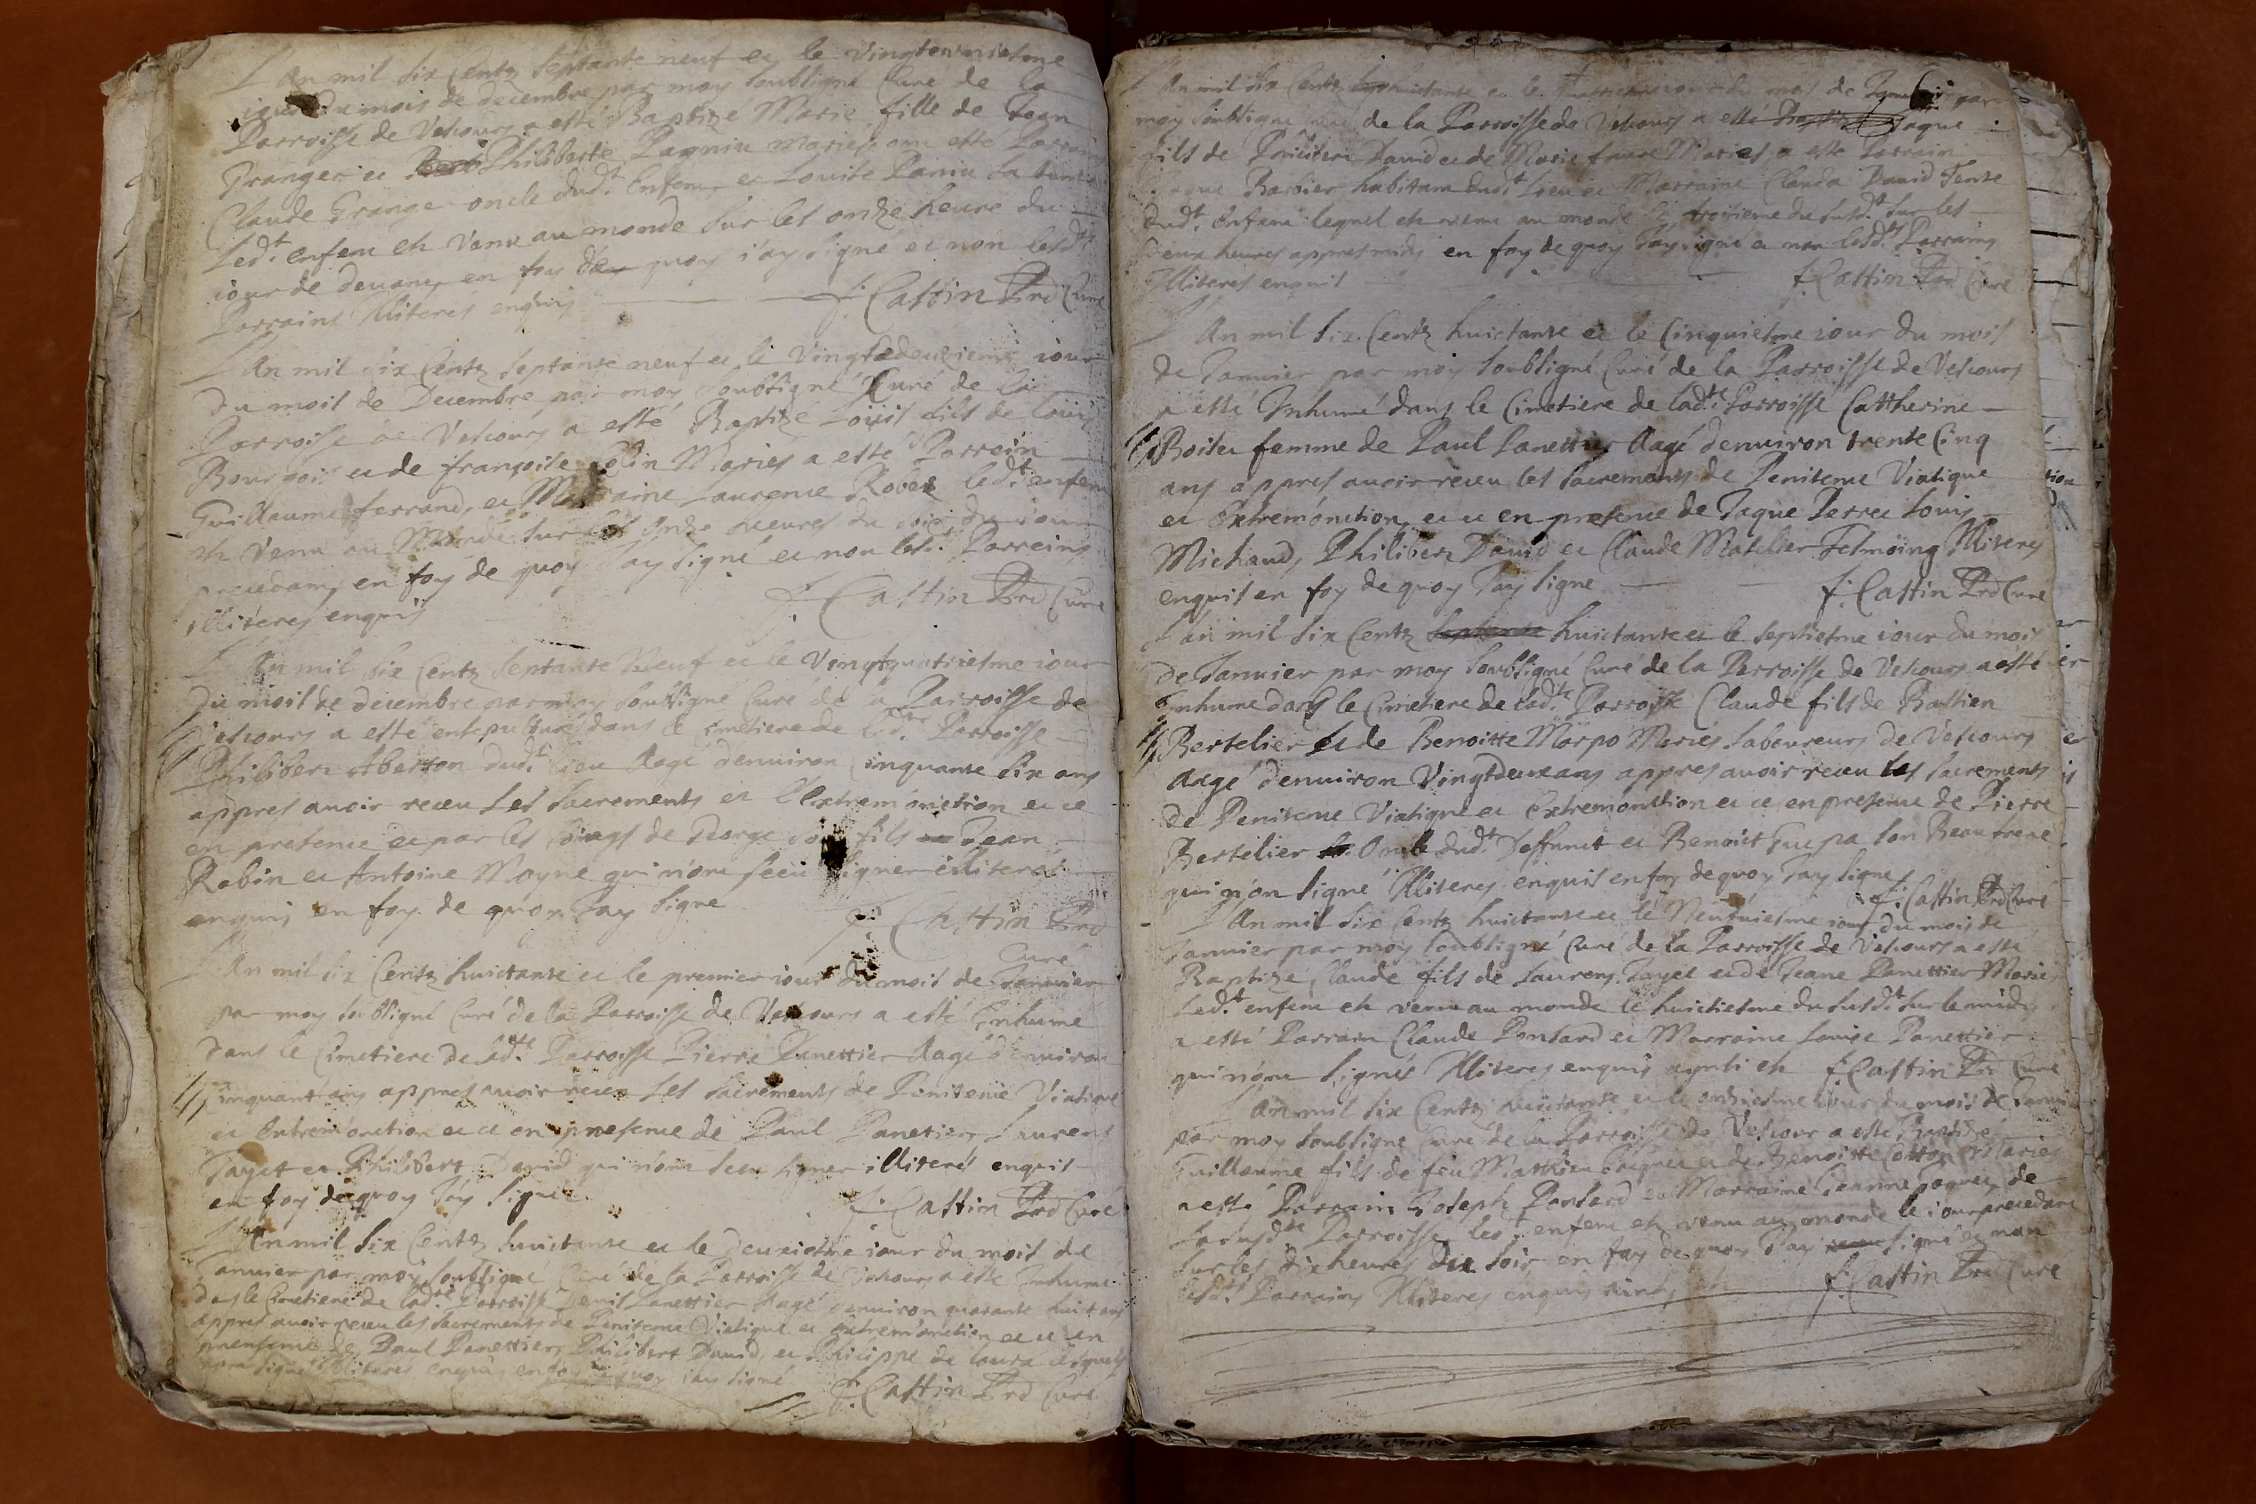 L'An mil six Centz septante neuf et le vingtunziesme
iour du mois de decembre par moy soubsigné Curé de la
Parroisse de Vescours a esté Baptizé Marie fille de Jean
Granger et Philiberte Pagniu Mariés, a esté Parrain
Claude Grange oncle dud.t Enfant et Louise Paniu
Led.t enfem eh venu au monde sur les onze heure du
iour de devant en foy de quoy i'ay signé et non lesd.ts
Parrains Illiteres enquis f: Castin Prd Curé
L'An mil six Centz septante neuf et le Vingtedeuxieme iour
du mois de Decembre par moy soubsigné Curé de la
Parroisse de Vescours a esté Baptizé Loüis fils de Loüis
Bourgois et de françoise Colin Mariés a esté Parrain
Guillaume ferrand, et Marraine Laurence Robet led.t enfem
eh venu au Monde sur les onze heures du soir du iour
precedam, en foy de quoy J'ay signé et non lesd.ts Parrains
illiteres enquis f: Castin Prd Curé
L'An mil six Centz septante Neuf et le Vingtquatriesme iour
du mois de decembre par moy soubsigné Curé de la Parroisse de
Vescours a esté ensepulturé dans le cimetiere de lad.te Parroisse
Philibert Aberton dud.t lieu Aagé denuiron cinquante six ans
appres auoir receu Les sacrements et l'extremonction et ce
en presence et par les soings de George son fils Jean
Robin et Antoine Moyne qui n'om sceu signer illiteres
enquis en foy de quoy J'ay signe f: Castin Prd
Curé
L'An mil six Centz huictante et le premier iour du mois de Januier
par moy soubsigné Curé de la Parroisse de Vescours a esté Inhumé
dans le Cimetiere de lad.te Parroisse Pierre Panettier Aagé denuiron
cinquant ans appres auoir receu Les sacrements de Penitence Viatique
et extremonction et ce en presence de Paul Panetier, Laurent
Jayet et Philibert David qui n'om sceu signer illiterés enquis
en foy de quoy J'ay signé f: Castin Prd Curé
L'An mil six Centz huictante et le deuxiesme iour du mois de
Januier par moy soubsigné Curé de la Parroisse de Vescours a esté Inhumé
dans le Cimetiere de lad.te Parroisse Denis Panettier Aagé denuiron quarante huict ans
appres auoir receu les sacrements de Penitence Viatique et extremonction et ce en
presence de Paul Panettier, Philibert David, et Philippe de laura lesquels
nom signé Illiteres enquis en foy de quoy i'ay signé f: Castin Prd Curé
L'An mil six Centz huictante et le iour du mois de Januier par
moy soubsigné Curé de la Parroisse de Vescours a esté Jaque
fils de Philibert David et de Marie faure Mariés, a esté Parrain
Jaque Barbier habitam dud.t lieu et Marraine Clauda David Tente
dud.t Enfem lequel eh venu au monde le troisieme du susd.t sur les
deux heures appres midy en foy de quoy J'ay signé et non lesd.ts Parrains
Illiteres enquis f: Castin Prd Curé
L'An mil six Centz huictante et le Cinquiesme iour du mois
de Januier par moy soubsigné Curé de la Parroisse de Vescours
a esté Inhumé dans le Cimetiere de lad.te Parroisse Catherine
Boiter femme de Paul Panettier Aagé denuiron trente Cinq
ans appres auoir receu les sacrements de Penitence Viatique
et extremonction, et ce en presence de Jaque Perret Louis
Michaud, Philibert David et Claude Matelier Tesmoing Illiteres
enquis en foy de quoy J'ay signe f: Castin Prd Curé
L'an mil six Centz septante huictante et le septiesme iour du mois
de Januier par moy soubsigné Curé de la Parroisse de Vescours a esté
Inhume dans le Cimetiere de lad.te Parroisse Claude fils de Bastien
Bertelier et de Benoitte Morpo Mariés laboureurs de Vescours
Aagé denuiron Vingtdeux ans appres auoir receu les sacrements
de Penitence Viatique et Extremonction et ce en presence de Pierre
Bertelier Oncle dud.t Deffunct et Benoict Guepa son Beau frere
qui n'on signé Illiteres enquis en foy de quoy J'ay signé
f: Castin Prd Curé
L'An mil six Centz huictante et le Neufuiesme iour du mois de
Januier par moy soubsigné Curé de la Parroisse de Vescours a esté
Baptize, Claude fils de Laurens Jayet et de Jeane Panettier Mariés
Led.t enfem eh venu au monde le huictiesme du susd.t sur le midy
a esté Parrain Claude Ponsard et Marraine Louise Panettier
qui n'om signés Illiteres enquis aynsi eh f: Castin Prd Curé
L'An mil six Centz huictante et le onziesme iour du mois de Januier
par moy soubsigné Curé de la Parroisse de Vescour a esté Baptizé
Guillaume fils de feu Mathieu et de Benoitte Cotton Mariés
a esté Parrain Joseph Ponsard et Marraine Jeanne de
Parroisse led.t enfem eh venu au monde le iour precedant
sur les dix heures du soir en foy de quoy J'ay signé et non
lesd.ts Parrains Illiteres enquis ainsy eh f: Castin Prd Curé